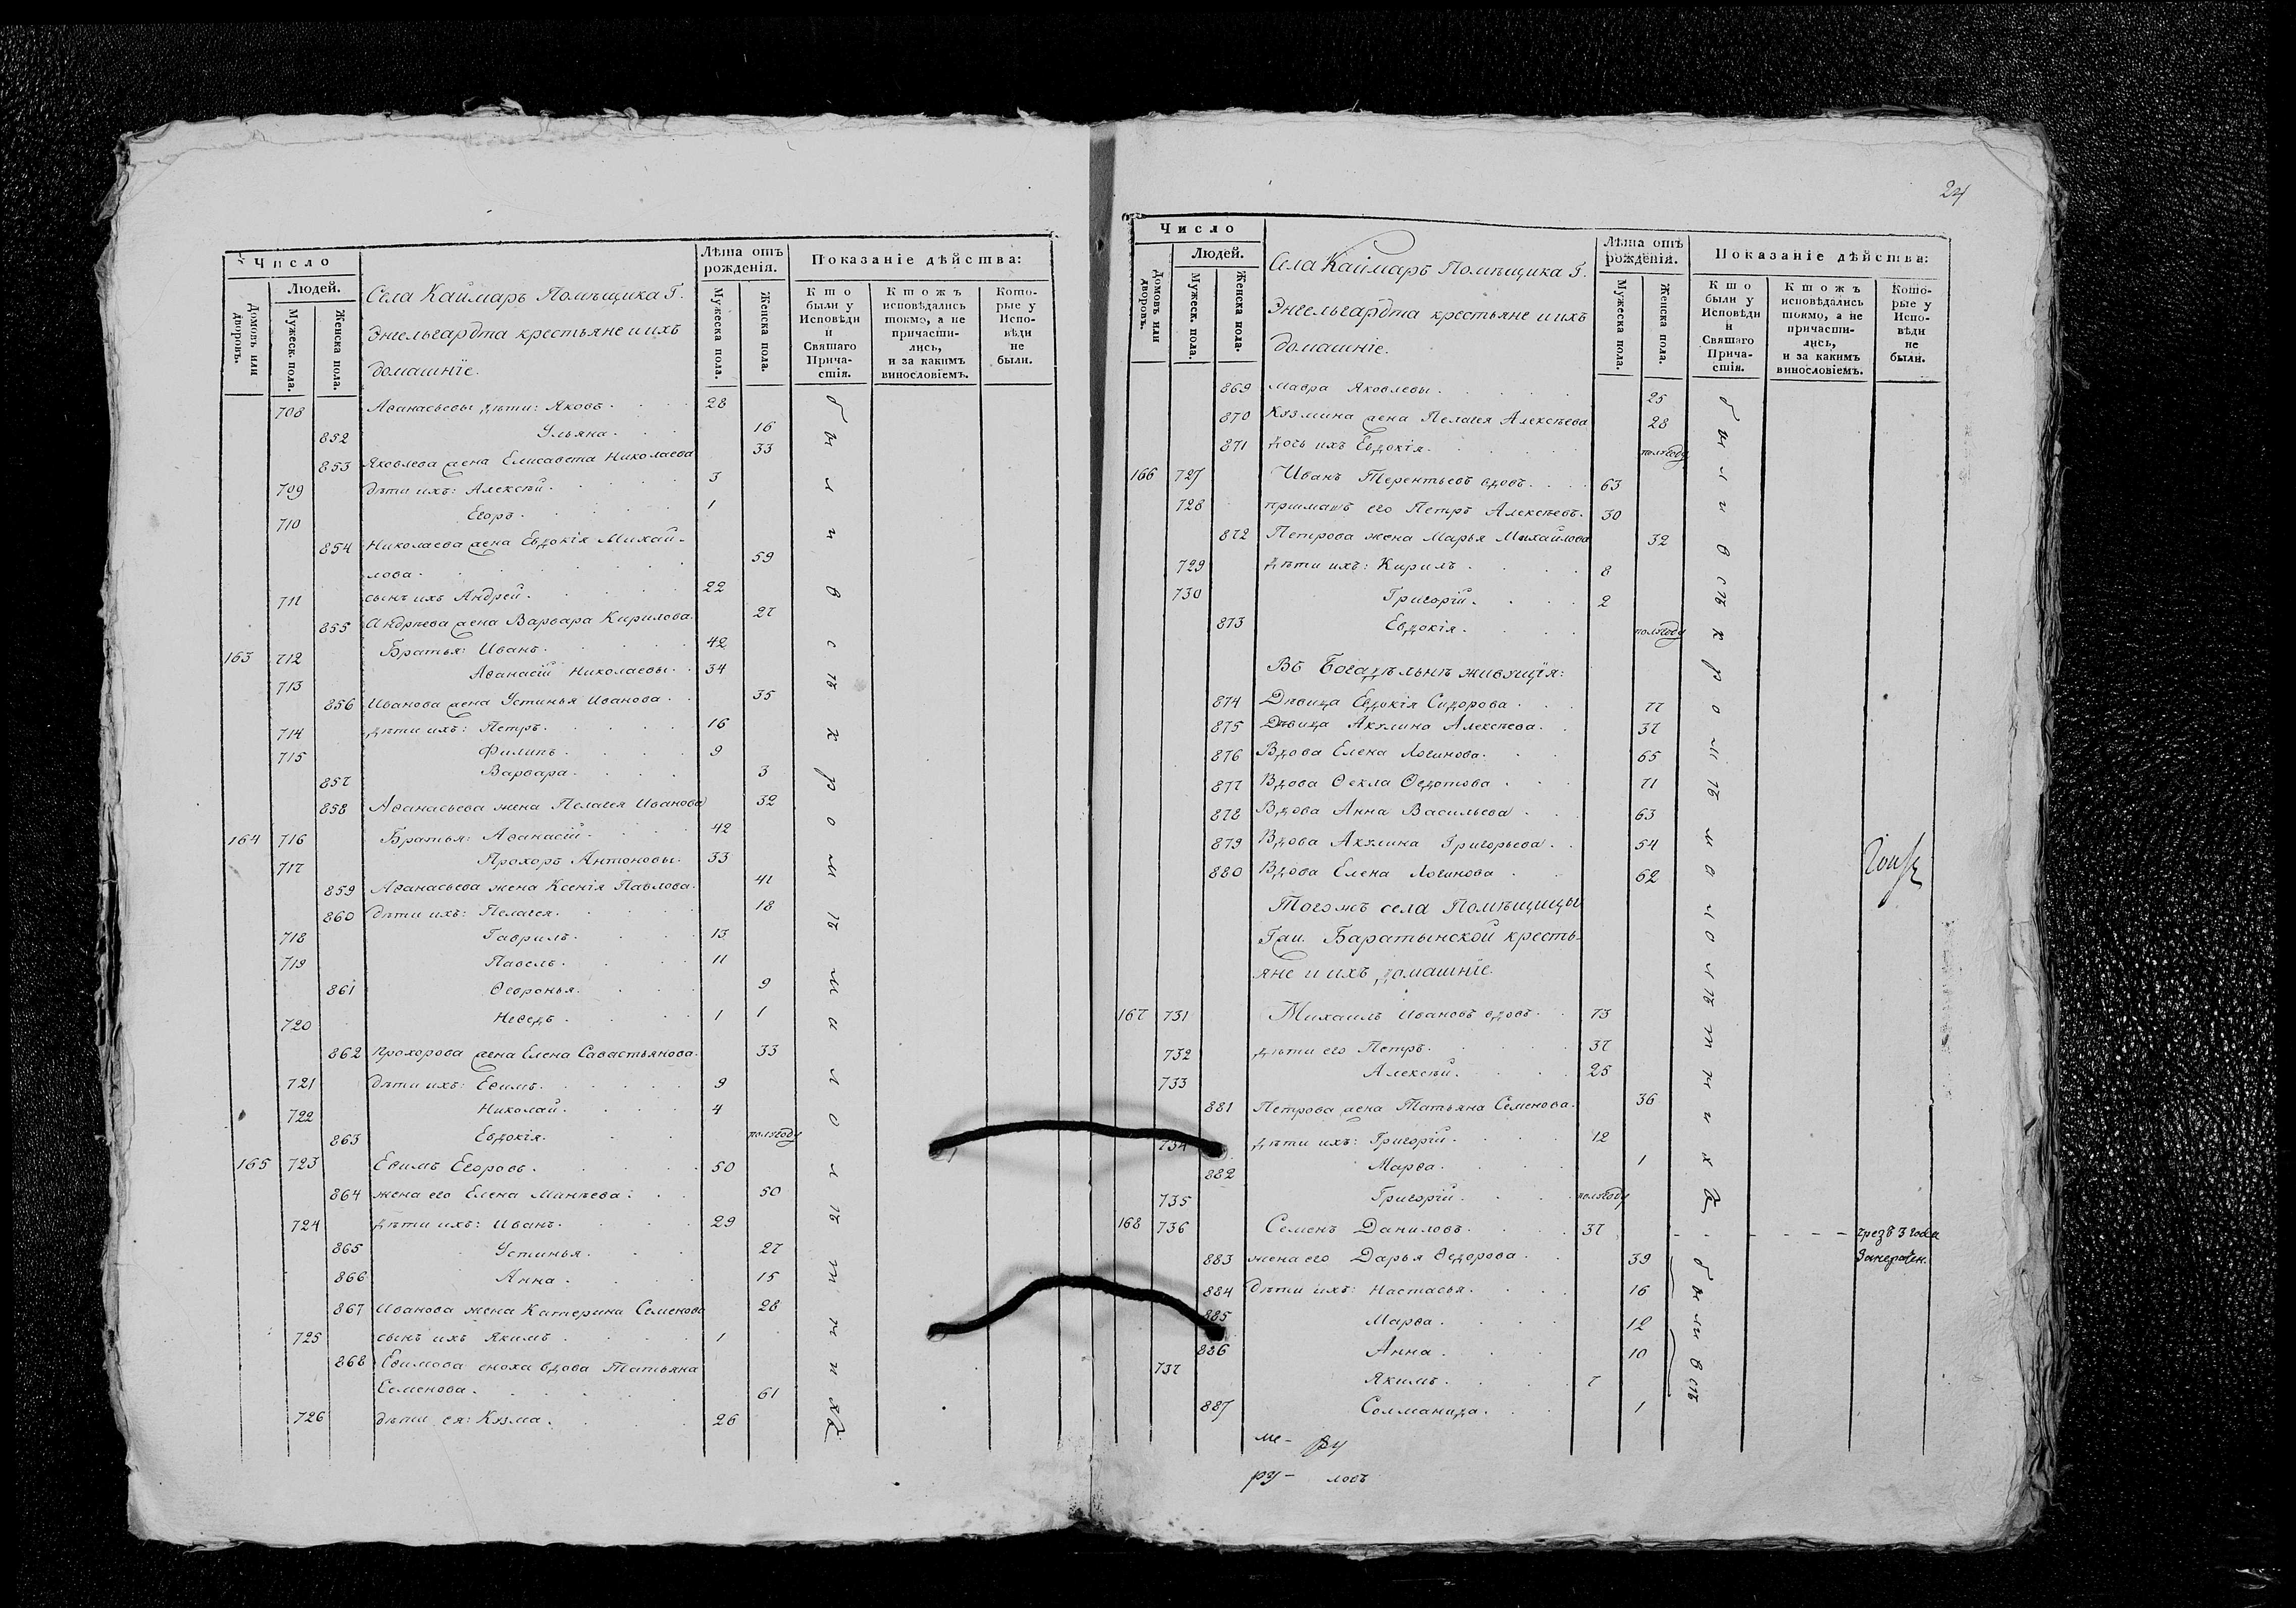 Число
Людей.
Домовъ или дворовъ.
Мужеск. пола.
Женска пола.
Села Каймаръ Помѣщика Г.
Энгельгардта крестьяне и ихъ
домашніе.
Лѣта отъ рожденія.
Мужеска пола.
Женска пола.
Показаніе дѣйства:
Кто были у Исповѣди и Святаго Причастія.
Ктожъ исповѣдались токмо, а не причастились, и за какимъ винословіемъ.
Которые у Исповѣди не были.
708 Аѳанасьевы дѣти: Яковъ. 28
852 Ульяна. 16
853 Яковлева жена Елисавета Николаева 33
709 дѣти ихъ: Алексѣй. 3
710 Егоръ. 1
854 Николаева жена Евдокія Михай-
лова. 59
711 сынъ ихъ Андрей. 22
855 Андрѣева жена Варвара Кирилова. 27
163 712 Братья: Иванъ. 42
713 Аѳанасій Николаевы. 34
856 Иванова жена Устинья Иванова. 35
714 дѣти ихъ: Петръ. 16
715 Филипъ. 9
857 Варвара. 3
858 Аѳанасьева жена Пелагея Иванова 32
164 716 Братья: Аѳанасій. 42
717 Прохоръ Антоновы. 33
859 Аѳанасьева жена Ксенія Павлова. 41
860 дѣти ихъ: Пелагея. 18
718 Гаврилъ. 13
719 Павелъ. 11
861 Ѳевронья. 9
720 Неѳедъ. 1 1
862 Прохорова жена Елена Савастьянова. 33
721 дѣти ихъ: Еѳимъ. 9
722 Николай. 4
863 Евдокія. полъгоду
165 723 Еѳимъ Егоровъ. 50
864 жена его Елена Минѣева. 50
724 дѣти ихъ: Иванъ. 29
865 Устинья. 27
866 Анна. 15
867 Иванова жена Катерина Семенова 28
725 сынъ ихъ Якимъ. 1
868 Еѳимова сноха вдова Татьяна
Семенова. 61
726 дѣти ея: Кузма. 26
были всѣ кромѣ малолѣтнихъ
24
Число
Людей.
Домовъ или дворовъ.
Мужеск. пола.
Женска пола.
Села Каймаръ Помѣщика Г.
Энгельгардта крестьяне и ихъ
домашніе.
Лѣта отъ рожденія.
Мужеска пола.
Женска пола.
Показаніе дѣйства:
Кто были у Исповѣди и Святаго Причастія.
Ктожъ исповѣдались токмо, а не причастились, и за какимъ винословіемъ.
Которые у Исповѣди не были.
869 Мавра Яковлевы. 25
870 Кузмина жена Пелагея Алексѣева 28
871 дочь ихъ Евдокія. полъгоду
166 727 Иванъ Терентьевъ вдовъ. 63
728 приматъ его Петръ Алексѣевъ. 30
872 Петрова жена Марья Михайлова 32
729 дѣти ихъ: Кирилъ. 8
730 Григорій. 2
873 Евдокія. полъгоду
Въ Богадѣльнѣ живущія:
874 Дѣвица Евдокія Сидорова. 77
875 Дѣвица Акулина Алексѣева. 37
876 Вдова Елена Логинова. 65
877 Вдова Ѳекла Ѳедотова. 71
878 Вдова Анна Васильева. 63
879 Вдова Акулина Григорьева. 54
880 Вдова Елена Логинова. 62
Тогожъ села Помѣщицы
Гжи. Баратынской кресть-
яне и ихъ домашніе.
167 731 Михаилъ Ивановъ вдовъ. 73
732 дѣти его Петръ. 37
733 Алексѣй. 25
881 Петрова жена Татьяна Семенова. 36
734 дѣти ихъ: Григорій. 12
882 Марѳа. 1
735 Григорій. полъгоду
168 736 Семенъ Даниловъ. 37 чрезъ 3 года
883 жена его Дарья Ѳедорова. 39
884 дѣти ихъ: Настасья. 16
885 Марѳа. 12
886 Анна. 10
737 Якимъ. 7
887 Соломанида. 1
были всѣ кромѣ малолѣтнихъ
были всѣ
ру- ловъ